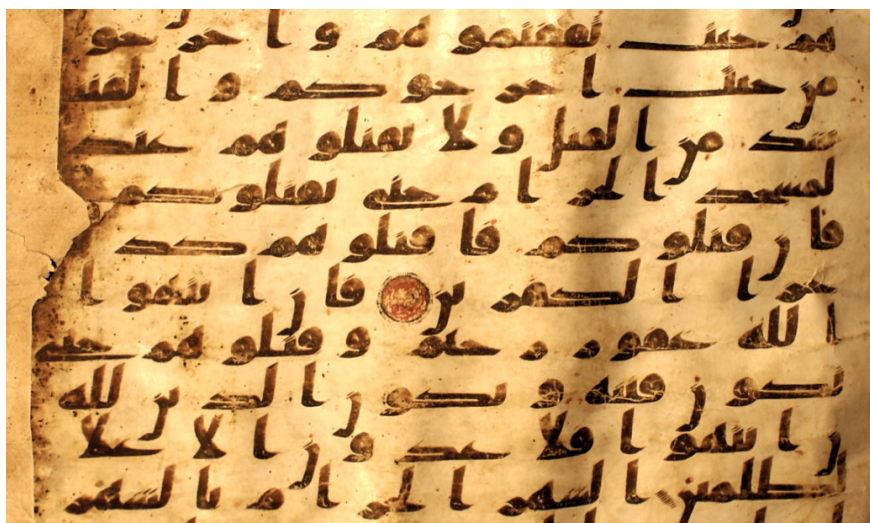 هم حيث ثقفتموهم واخرجو
من حيث اخرجوكم والفتنة
شد من القتل ولا تقتلوهم عند
لمسجد الحرام حتى يقتلوكم
فان قتلوكم فاقتلوهم كذ
جزا الكفرين فان انتهوا
الله غفور رحيم وقتلوهم حتى
تكون فتنة ويكون الدين لله
ن انتهوا فلا عدون الا علا
الظلمين الشهر الحرام بالشهر